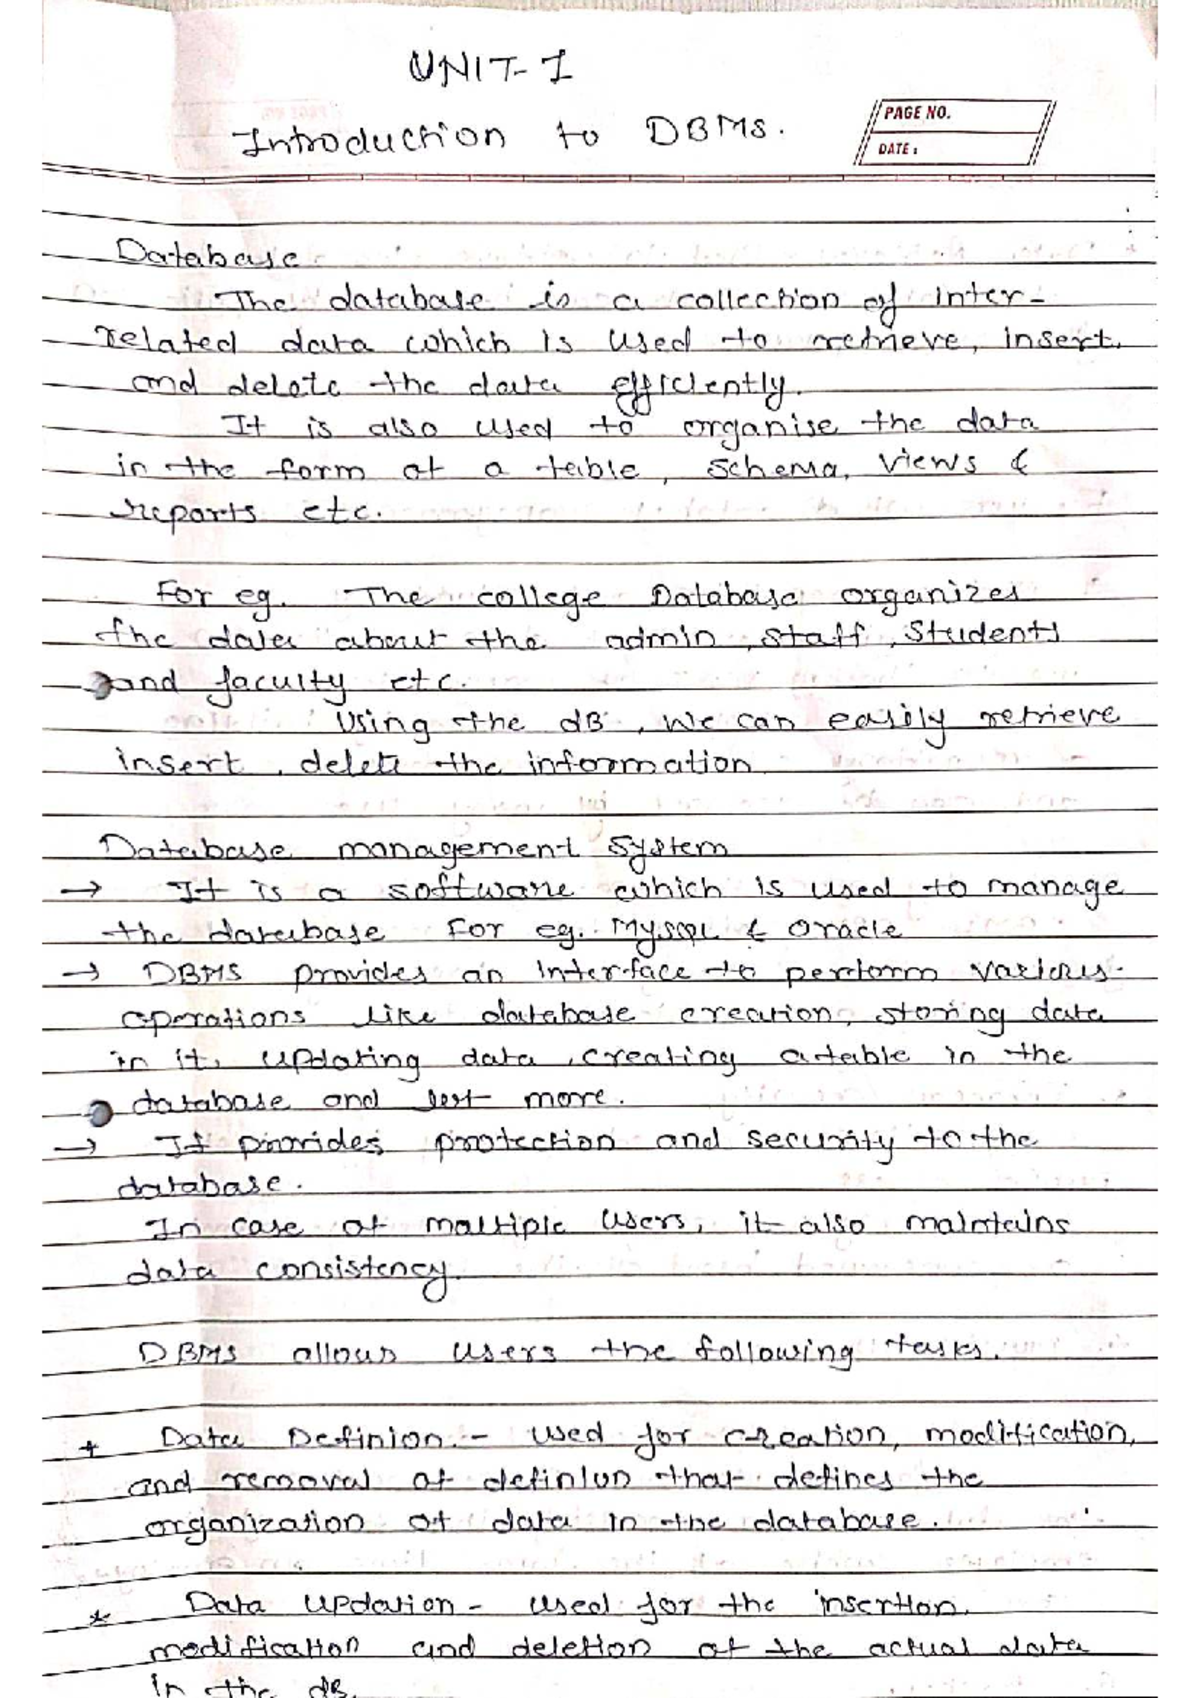 UNIT-1
Introduction to DBMS.
PAGE NO.
DATE:
Database
The database is a collection of inter-
related data which is used to retrieve, insert,
and delete the data efficiently.
It is also used to organise the data
in the form of a table, schema, views &
reports etc.
For eg. The college Database organizes
the data about the admin, staff, students
and faculty etc.
Using the dB, we can easily retrieve
insert, delete the information
Database management System
→ It is a software which is used to manage
the database For eg. MySQL & Oracle
→ DBMS provides an interface to perform various
operations like database creation, storing data
in it, updating data, creating a table in the
database and more.
→ It provides protection and security to the
database.
In case of multiple users, it also maintains
data consistency.
DBMS allows users the following tasks.
* Data Definion:- used for creation, modification,
and removal of definion that defines the
organization of data in the database.
* Data Updation - used for the insertion,
modification and deletion of the actual data
in the dB.